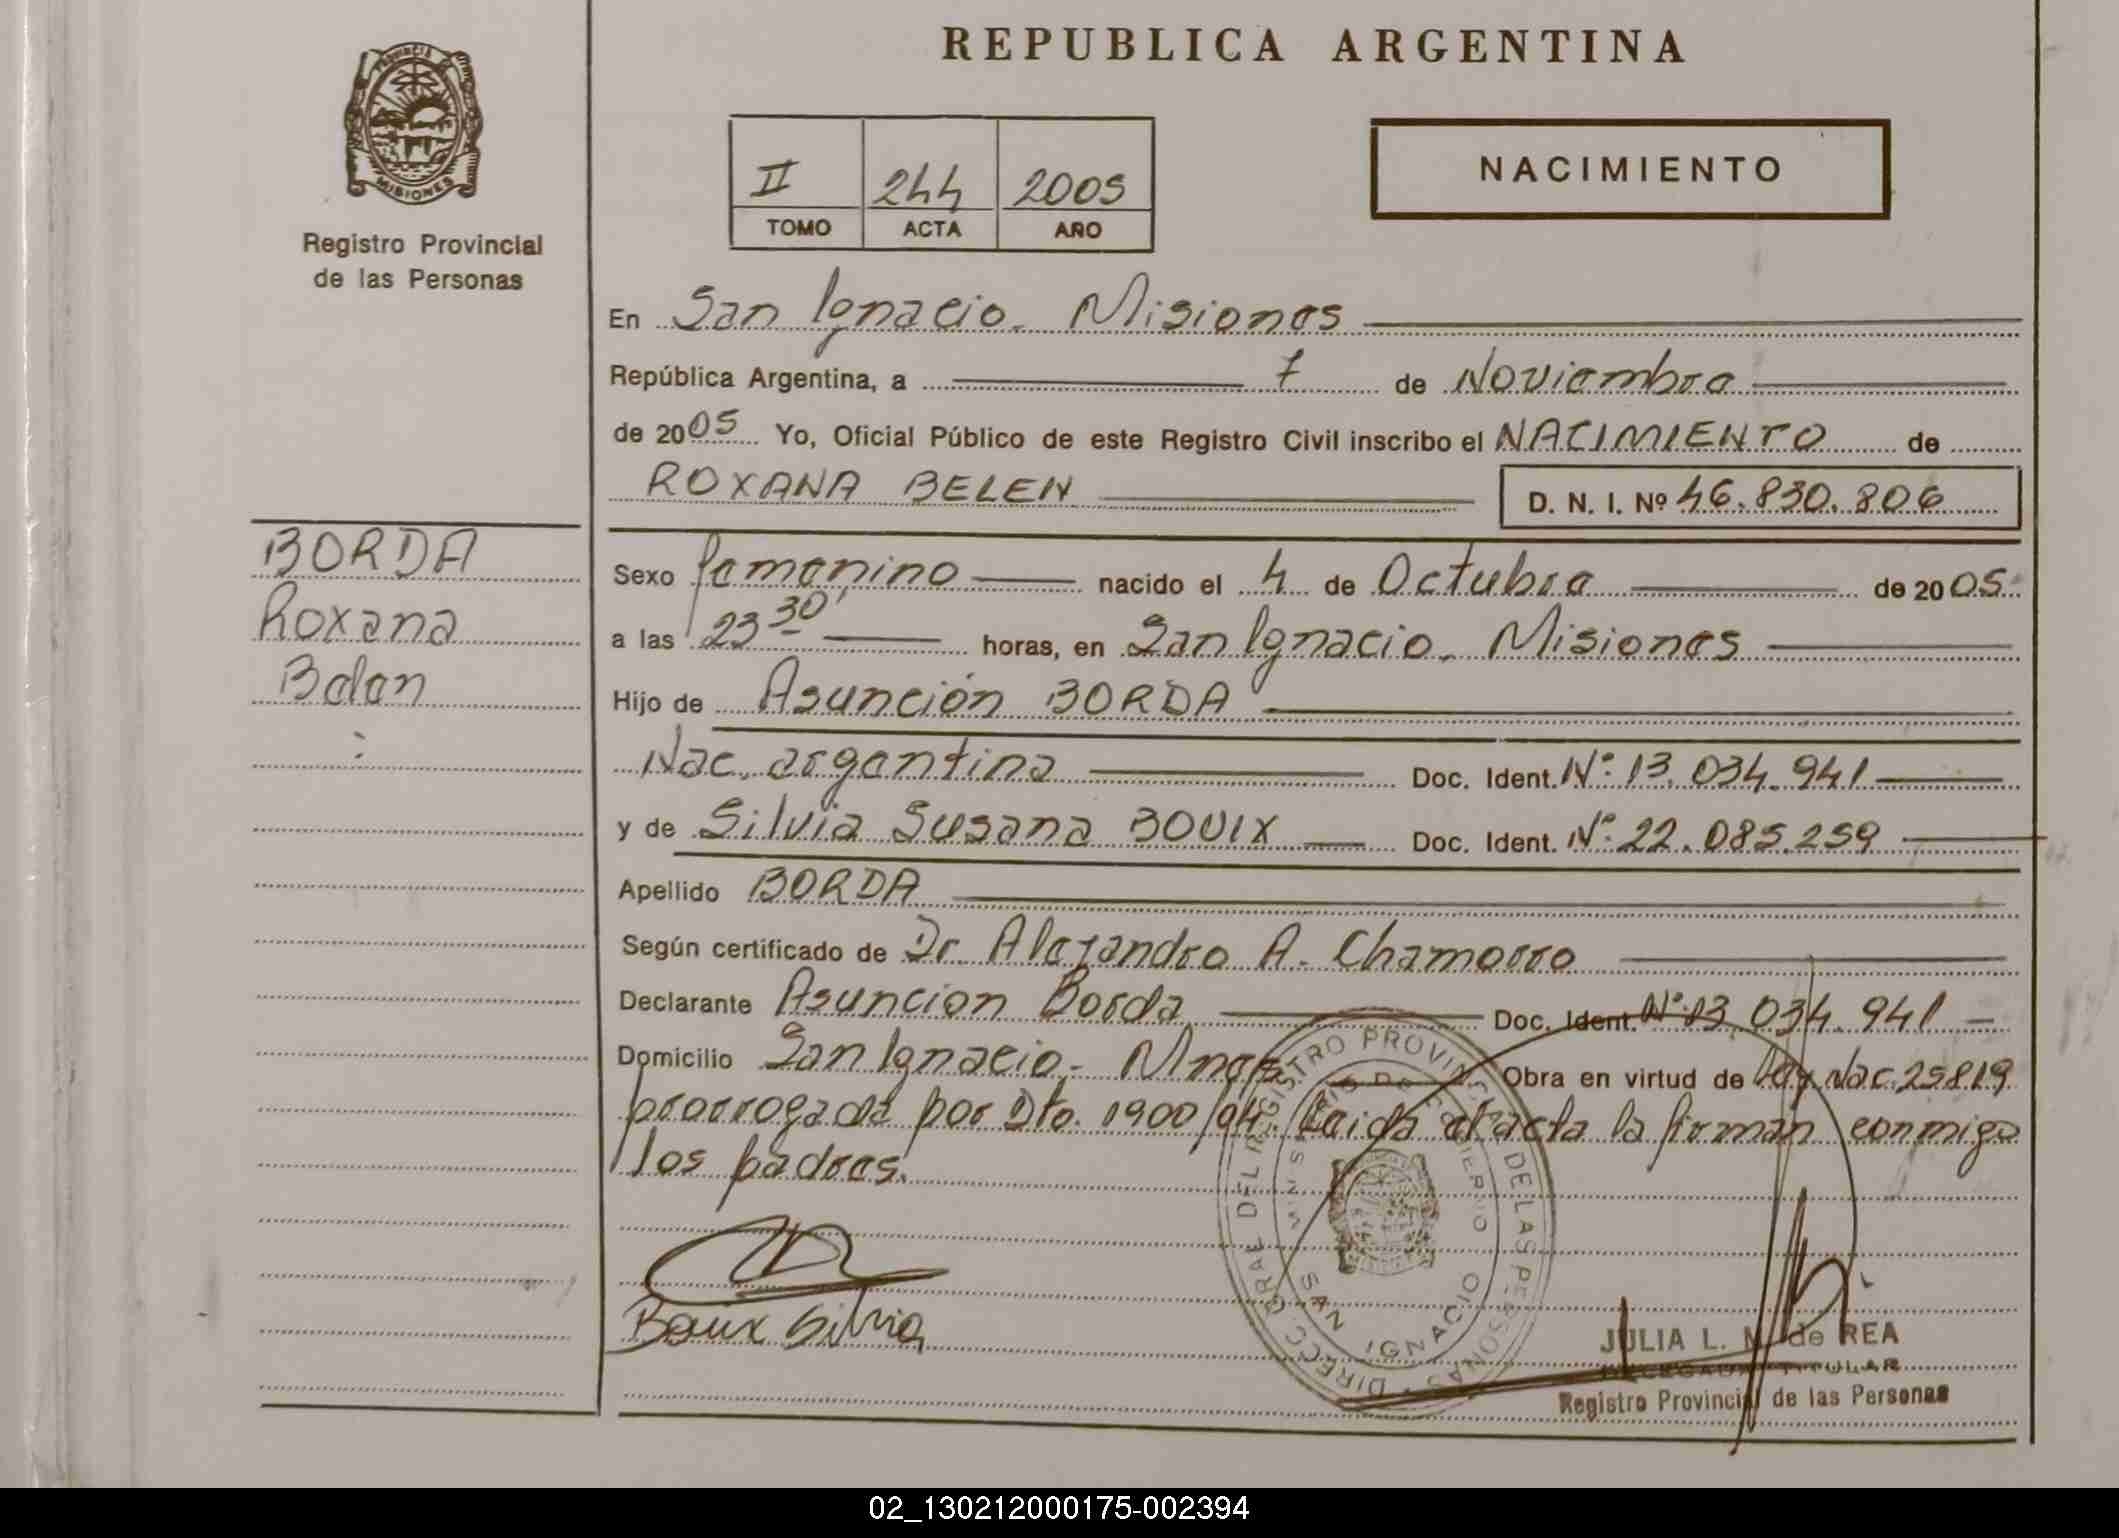 REPUBLICA ARGENTINA
PROVINCIA DE MISIONES
Registro Provincial
de las Personas
II 244 2005
TOMO ACTA AÑO
NACIMIENTO
En San Ignacio. Misiones
República Argentina, a 7 de Noviembre
de 2005 Yo, Oficial Público de este Registro Civil inscribo el NACIMIENTO de
ROXANA BELEN D. N. I. Nº 46.830.806
BORDA
Roxana
Belen
Sexo femenino nacido el 4 de Octubre de 2005
a las 23 30 horas, en San Ignacio. Misiones
Hijo de Asunción BORDA
Nac. argentina Doc. Ident. Nº: 13.034.941
y de Silvia Susana BOUIX Doc. Ident. Nº: 22.085.259
Apellido BORDA
Según certificado de Dr. Alejandro A. Chamorro
Declarante Asuncion Borda Doc. Ident. Nº: 13.034.941
Domicilio San Ignacio - Mnes Obra en virtud de Ley Nac. 25819
prorrogada por Dto. 1900/04. Leida el acta la firman conmigo
los padres.
Bouix Silvia
DIRECC. GRAL. DEL REGISTRO PROVINCIAL DE LAS PERSONAS
MINISTERIO DE GOBIERNO
SAN IGNACIO
JULIA L. M. de REA
DELEGADA TITULAR
Registro Provincial de las Personas
02_130212000175-002394